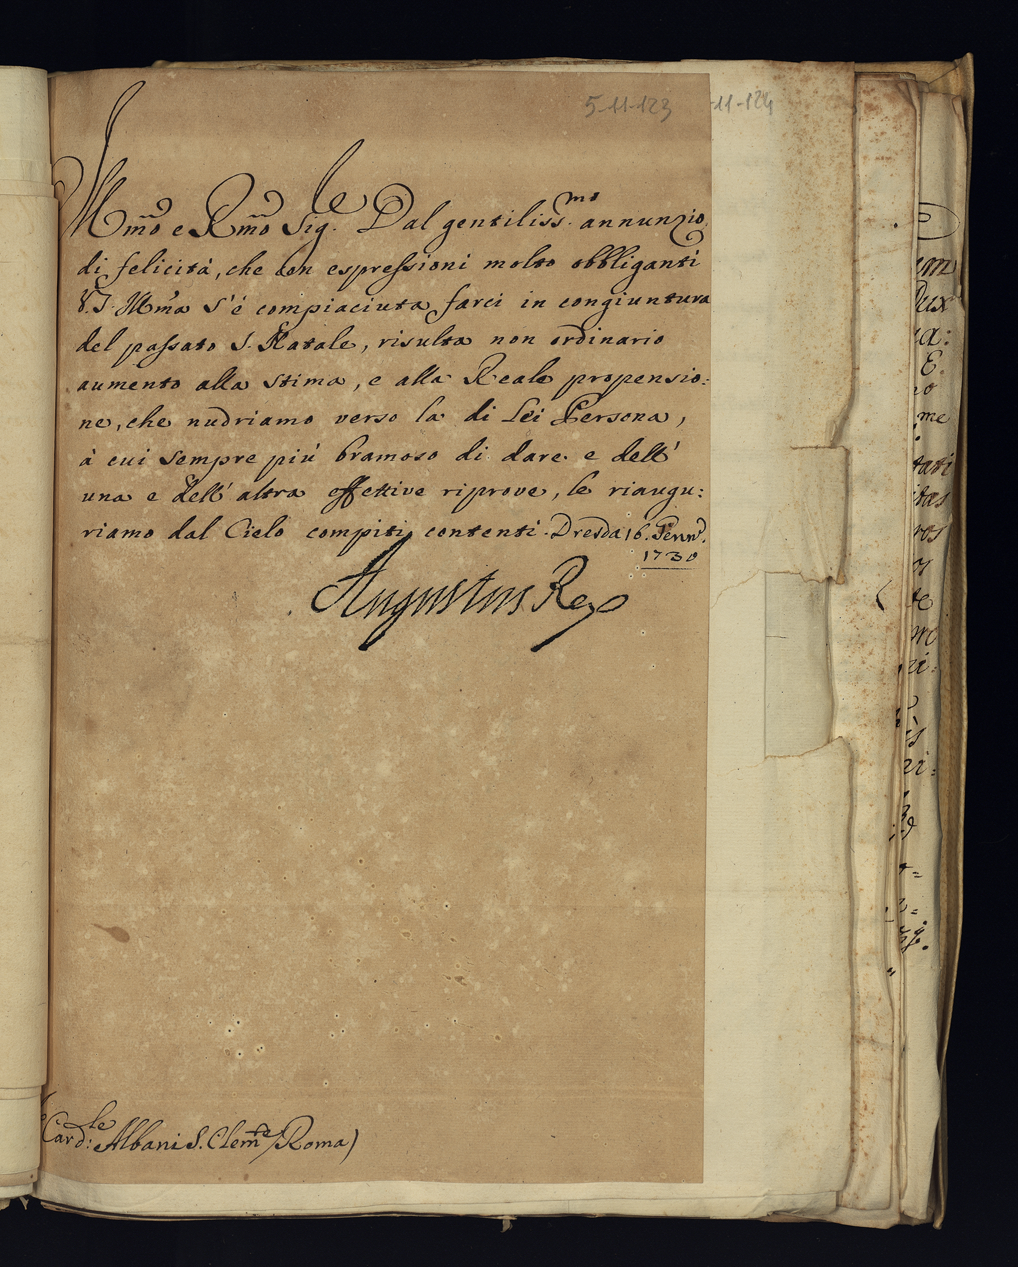 5-11-123
-11-124
Illmo e Rmo Sig.re Dal gentiliss.mo annunzio
di felicità, che con espressioni molto obbliganti
V.S. Illma s'é compiaciuta farci in congiuntura
del passato S. Natale, risulta non ordinario
aumento alla stima, e alla Reale propensio:
ne, che nudriamo verso la di Lei Persona,
à cui sempre più bramoso di dare e dell'
una e dell' altra effettive riprove, le riaugu:
riamo dal Cielo compiti contenti. Dresda 16. Genn.
1730
Augustus Rex
Card:le Albani S. Clemte (Roma)